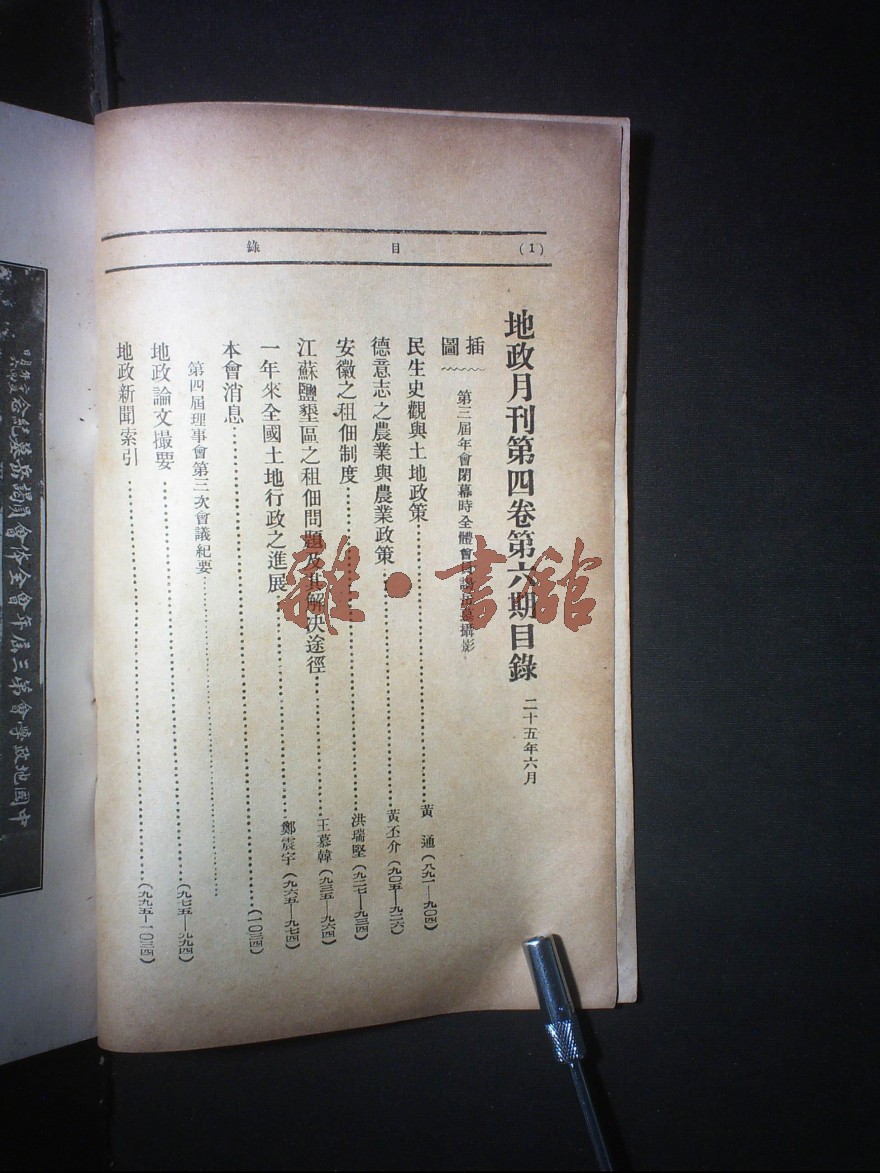 目錄
(1)
地政月刊第四卷第六期目錄 二十五年六月
插圖
第三屆年會閉幕時全體會員 攝影
民生史觀與土地政策 黃通(八九一—九〇四)
德意志之農業與農業政策 黃丕介(九〇五—九二六)
安徽之租佃制度 洪瑞堅(九二七—九三四)
江蘇鹽墾區之租佃問題及其解決途徑 王慕韓(九三五—九六四)
一年來全國土地行政之進展 鄭震宇(九六五—九七四)
本會消息 (一〇三四)
第四屆理事會第三次會議紀要
地政論文撮要 (九七五—九九四)
地政新聞索引 (九九五—一〇三四)
雜·書館
中國地政學會第三屆年會全体會員謁岳墓紀念